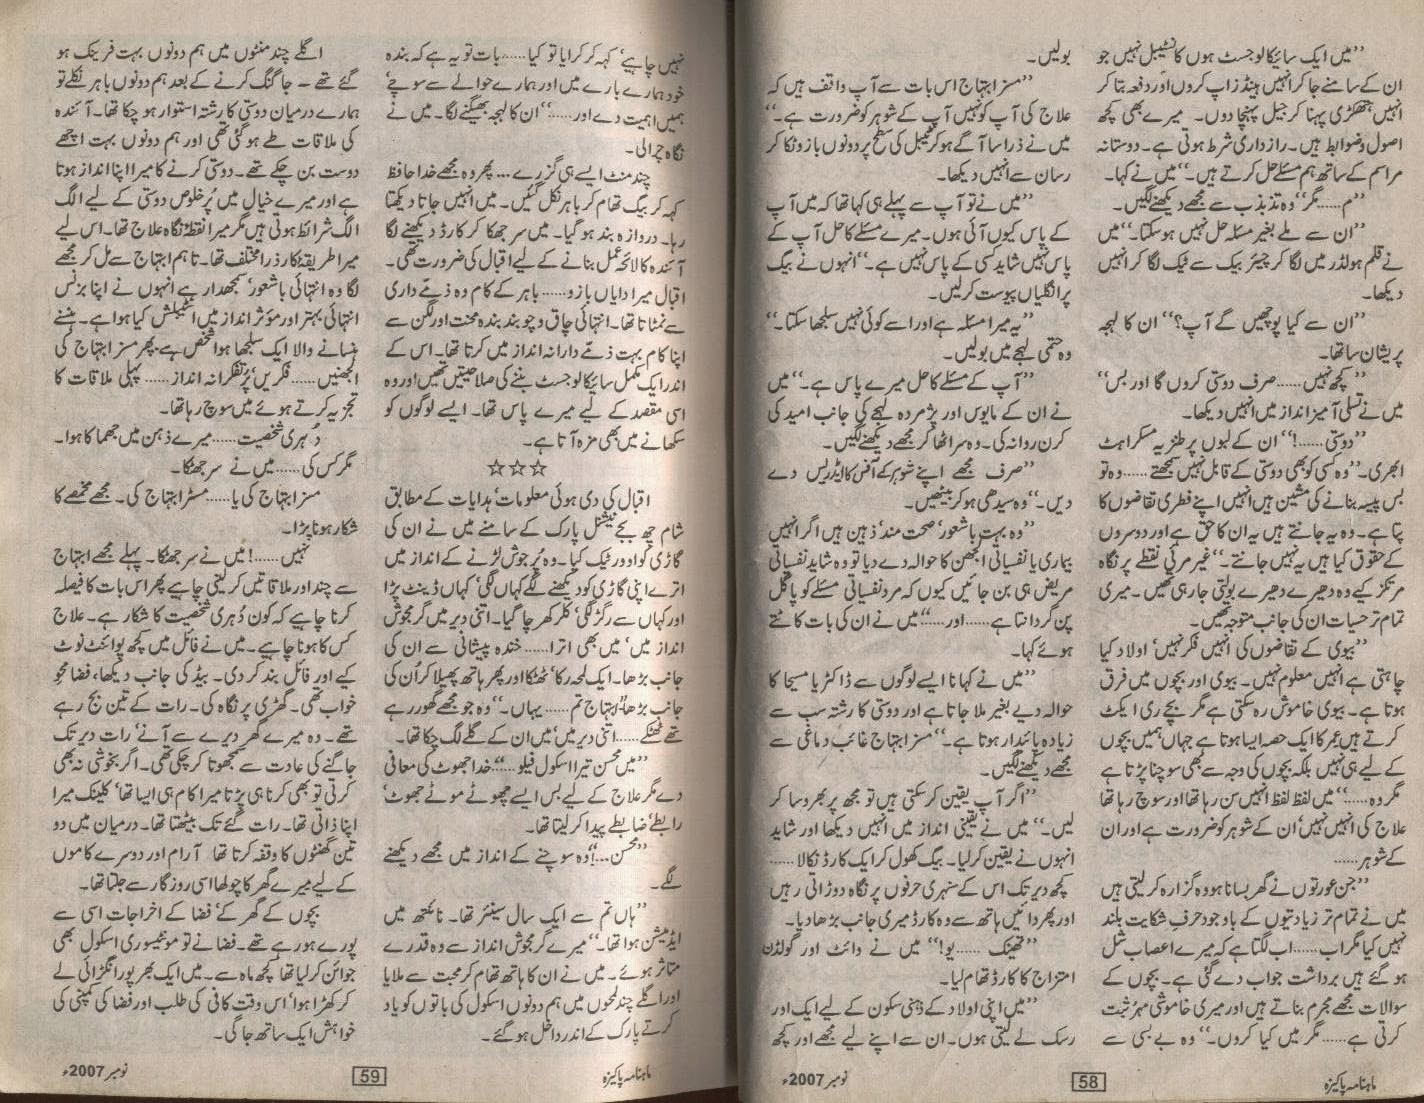 ’’میں ایک سائیکالوجسٹ ہوں کانسٹیبل نہیں جو
ان کے سامنے جا کر انہیں ہینڈز اپ کروں اور دفعہ بتا کر
انہیں ہتھکڑی پہنا کر جیل پہنچا دوں۔ میرے بھی کچھ
اصول و ضوابط ہیں۔ رازداری شرط ہوتی ہے۔ دوستانہ
مراسم کے ساتھ ہم مسئلے حل کرتے ہیں۔‘‘ میں نے کہا۔
’’م......مگر‘‘ وہ تذبذب سے مجھے دیکھنے لگیں۔
’’ان سے ملے بغیر مسئلہ حل نہیں ہو سکتا۔‘‘ میں
نے قلم ہولڈر میں لگا کر چیئر بیک سے ٹیک لگا کر انہیں
دیکھا۔
’’ان سے کیا پوچھیں گے آپ؟‘‘ ان کا لہجہ
پریشان سا تھا۔
’’کچھ نہیں......صرف دوستی کروں گا اور بس‘‘
میں نے تسلی آمیز انداز میں انہیں دیکھا۔
’’دوستی......!‘‘ ان کے لبوں پر طنزیہ مسکراہٹ
ابھری۔ ’’وہ کسی کو بھی دوستی کے قابل نہیں سمجھتے......وہ تو
بس پیسہ بنانے کی مشین ہیں انہیں اپنے فطری تقاضوں کا
پتا ہے۔ وہ یہ جانتے ہیں یہ ان کا حق ہے اور دوسروں
کے حقوق کیا ہیں یہ نہیں جانتے۔‘‘ غیر مرئی نقطے پر نگاہ
مرتکز کیے وہ دھیرے دھیرے بولتی جا رہی تھیں۔ میری
تمام تر حسیات ان کی جانب متوجہ تھیں۔
’’بیوی کے تقاضوں کی انہیں فکر نہیں‘ اولاد کیا
چاہتی ہے انہیں معلوم نہیں۔ بیوی اور بچوں میں فرق
ہوتا ہے۔ بیوی خاموش رہ سکتی ہے مگر بچے ری ایکٹ
کرتے ہیں عمر کا ایک حصہ ایسا ہوتا ہے جہاں ہمیں بچوں
کے لیے ہی نہیں بلکہ بچوں کی وجہ سے بھی سوچنا پڑتا ہے
مگر وہ......‘‘ میں لفظ لفظ انہیں سن رہا تھا اور سوچ رہا تھا
علاج کی انہیں نہیں‘ ان کے شوہر کو ضرورت ہے اور ان
کے شوہر......
’’جن عورتوں نے گھر بسانا ہو وہ گزارہ کر لیتی ہیں
میں نے تمام تر زیادتیوں کے باوجود حرف شکایت بلند
نہیں کیا مگر اب......اب لگتا ہے کہ میرے اعصاب شل
ہو گئے ہیں برداشت جواب دے گئی ہے۔ بچوں کے
سوالات مجھے مجرم بناتے ہیں اور میری خاموشی مہر ثبت
کرتی ہے......مگر میں کیا کروں۔‘‘ وہ بے بسی سے
بولیں۔
’’مسز ابتہاج اس بات سے آپ واقف ہیں کہ
علاج کی آپ کو نہیں آپ کے شوہر کو ضرورت ہے۔‘‘
میں نے ذرا سا آگے ہو کر ٹیبل کی سطح پر دونوں بازو ٹکا کر
رسان سے انہیں دیکھا۔
’’میں نے تو آپ سے پہلے ہی کہا تھا کہ میں آپ
کے پاس کیوں آئی ہوں۔ میرے مسئلے کا حل آپ کے
پاس نہیں شاید کسی کے پاس نہیں ہے۔‘‘ انہوں نے بیگ
پر انگلیاں پیوست کر لیں۔
’’یہ میرا مسئلہ ہے اور اسے کوئی نہیں سلجھا سکتا۔‘‘
وہ حتمی لہجے میں بولیں۔
’’آپ کے مسئلے کا حل میرے پاس ہے۔‘‘ میں
نے ان کے مایوس اور پژمردہ لہجے کی جانب امید کی
کرن روانہ کی۔ وہ سر اٹھا کر مجھے دیکھنے لگیں۔
’’صرف مجھے اپنے شوہر کے آفس کا ایڈریس دے
دیں۔‘‘ وہ سیدھی ہو کر بیٹھیں۔
’’وہ بہت باشعور‘ صحت مند‘ ذہین ہیں اگر انہیں
بیماری یا نفسیاتی الجھن کا حوالہ دے دیا تو وہ شاید نفسیاتی
مریض ہی بن جائیں کیوں کہ مرد نفسیاتی مسئلے کو پاگل
پن گردانتا ہے......اور......‘‘ میں نے ان کی بات کاٹتے
ہوئے کہا۔
’’میں نے کہا نا ایسے لوگوں سے ڈاکٹر یا مسیحا کا
حوالہ دیے بغیر ملا جاتا ہے اور دوستی کا رشتہ سب سے
زیادہ پائیدار ہوتا ہے۔‘‘ مسز ابتہاج غائب دماغی سے
مجھے دیکھنے لگیں۔
’’اگر آپ یقین کر سکتی ہیں تو مجھ پر بھروسا کر
لیں۔‘‘ میں نے یقینی انداز میں انہیں دیکھا اور شاید
انہوں نے یقین کر لیا۔ بیگ کھول کر ایک کارڈ نکالا......
کچھ دیر تک اس کے سنہری حرفوں پر نگاہ دوڑاتی رہیں
اور پھر دائیں ہاتھ سے وہ کارڈ میری جانب بڑھا دیا۔
’’تھینک......یو!‘‘ میں نے وائٹ اور گولڈن
امتزاج کا کارڈ تھام لیا۔
’’میں اپنی اولاد کے ذہنی سکون کے لیے ایک اور
رسک لے لیتی ہوں۔ ان سے اپنے لیے مجھے اور کچھ
ماہنامہ پاکیزہ
58
نومبر 2007ء
نہیں چاہیے‘ کہہ کر کرایا تو کیا......بات تو یہ ہے کہ بندہ
خود ہمارے بارے میں اور ہمارے حوالے سے سوچے‘
ہمیں اہمیت دے اور......‘‘ ان کا لہجہ بھیگنے لگا۔ میں نے
نگاہ چرالی۔
چند منٹ ایسے ہی گزرے... پھر وہ مجھے خدا حافظ
کہہ کر بیگ تھام کر باہر نکل گئیں۔ میں انہیں جاتا دیکھتا
رہا۔ دروازہ بند ہو گیا۔ میں سر جھکا کر کارڈ دیکھنے لگا
آئندہ کا لائحہ عمل بنانے کے لیے اقبال کی ضرورت تھی۔
اقبال میرا دایاں بازو......باہر کے کام وہ ذمے داری
سے نمٹاتا تھا۔ انتہائی چاق و چوبند بندہ محنت اور لگن سے
اپنا کام بہت ذمے دارانہ انداز میں کرتا تھا۔ اس کے
اندر ایک مکمل سائیکالوجسٹ بننے کی صلاحیتیں تھیں اور وہ
اسی مقصد کے لیے میرے پاس تھا۔ ایسے لوگوں کو
سکھانے میں بھی مزہ آتا ہے۔
☆☆☆
اقبال کی دی ہوئی معلومات‘ ہدایات کے مطابق
شام چھ بجے نیشنل پارک کے سامنے میں نے ان کی
گاڑی کو اوور ٹیک کیا۔ وہ پُرجوش لڑنے کے انداز میں
اترے اپنی گاڑی کو دیکھنے لگے کہاں لگی‘ کہاں ڈینٹ پڑا
اور کہاں سے رگڑ لگی‘ کلر کھرچا گیا۔ اتنی دیر میں گرمجوش
انداز میں‘ میں بھی اترا......خندہ پیشانی سے ان کی
جانب بڑھا۔ ایک لمحہ رکا‘ ٹھٹکا اور پھر ہاتھ پھیلا کر اُن کی
جانب بڑھا ’’ابتہاج تم......یہاں۔‘‘ وہ جو مجھے گھور رہے
تھے ٹھٹکے......اتنی دیر میں‘ میں ان کے گلے لگ چکا تھا۔
’’میں محسن تیرا اسکول فیلو......‘‘ خدا جھوٹ کی معافی
دے مگر علاج کے لیے بس ایسے چھوٹے موٹے جھوٹ‘
رابطے‘ ضابطے پیدا کر لیتا تھا۔
’’محسن...‘‘ وہ سوچنے کے انداز میں مجھے دیکھنے
لگے۔
’’ہاں تم سے ایک سال سینئر تھا۔ نائنتھ میں
ایڈمیشن ہوا تھا۔‘‘ میرے گرمجوش انداز سے وہ قدرے
متاثر ہوئے۔ میں نے ان کا ہاتھ تھام کر محبت سے ملایا
اور اگلے چند لمحوں میں ہم دونوں اسکول کی باتوں کو یاد
کرتے پارک کے اندر داخل ہو گئے۔
اگلے چند منٹوں میں ہم دونوں بہت فرینک ہو
گئے تھے۔ جاگنگ کرنے کے بعد ہم دونوں باہر نکلے تو
ہمارے درمیان دوستی کا رشتہ استوار ہو چکا تھا۔ آئندہ
کی ملاقات طے ہو گئی تھی اور ہم دونوں بہت اچھے
دوست بن چکے تھے۔ دوستی کرنے کا میرا اپنا انداز ہوتا
ہے اور میرے خیال میں پُرخلوص دوستی کے لیے الگ
الگ شرائط ہوتی ہیں مگر میرا نقطۂ نگاہ علاج تھا۔ اس لیے
میرا طریقۂ کار ذرا مختلف تھا۔ تاہم ابتہاج سے مل کر مجھے
لگا وہ انتہائی باشعور‘ سمجھدار ہے انہوں نے اپنا بزنس
انتہائی بہتر اور مؤثر انداز میں اسٹیبلش کیا ہوا ہے۔ ہنسنے
ہنسانے والا ایک سلجھا ہوا شخص ہے پھر مسز ابتہاج کی
الجھنیں......فکریں‘ پُرتفکرانہ انداز......پہلی ملاقات کا
تجزیہ کرتے ہوئے میں سوچ رہا تھا۔
دُہری شخصیت......میرے ذہن میں جھماکا ہوا۔
مگر کس کی......میں نے سر جھٹکا۔
مسز ابتہاج کی یا......مسٹر ابتہاج کی۔ مجھے مخمصے کا
شکار ہونا پڑا۔
نہیں......! میں نے سر جھٹکا۔ پہلے مجھے ابتہاج
سے چند اور ملاقاتیں کر لینی چاہیے پھر اس بات کا فیصلہ
کرنا چاہیے کہ کون دُہری شخصیت کا شکار ہے۔ علاج
کس کا ہونا چاہیے۔ میں نے فائل میں کچھ پوائنٹ نوٹ
کیے اور فائل بند کر دی۔ بیڈ کی جانب دیکھا، فضا محوِ
خواب تھی۔ گھڑی پر نگاہ کی۔ رات کے تین بج رہے
تھے۔ وہ میرے گھر دیر سے آنے‘ رات دیر تک
جاگنے کی عادت سے سمجھوتا کر چکی تھی۔ اگر بخوشی نہ بھی
کرتی تو بھی کرنا ہی پڑتا میرا کام ہی ایسا تھا‘ کلینک میرا
اپنا ذاتی تھا۔ رات گئے تک بیٹھتا تھا۔ درمیان میں دو
تین گھنٹوں کا وقفہ کرتا تھا آرام اور دوسرے کاموں
کے لیے میرے گھر کا چولھا اسی روزگار سے جلتا تھا۔
بچوں کے گھر کے‘ فضا کے اخراجات اسی سے
پورے ہو رہے تھے۔ فضا نے تو مونٹیسوری اسکول بھی
جوائن کر لیا تھا کچھ ماہ سے۔ میں ایک بھرپور انگڑائی لے
کر کھڑا ہوا‘ اس وقت کافی کی طلب اور فضا کی کمپنی کی
خواہش ایک ساتھ جاگی۔
ماہنامہ پاکیزہ
59
نومبر 2007ء